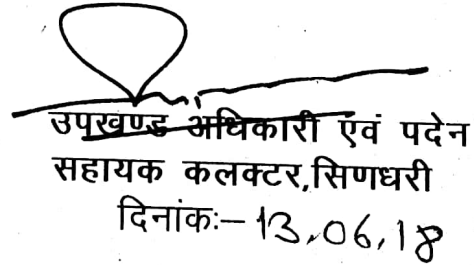 उपखण्ड अधिकारी एवं पदेन
सहायक कलक्टर,सिणधरी
दिनांकः– 13.06.18